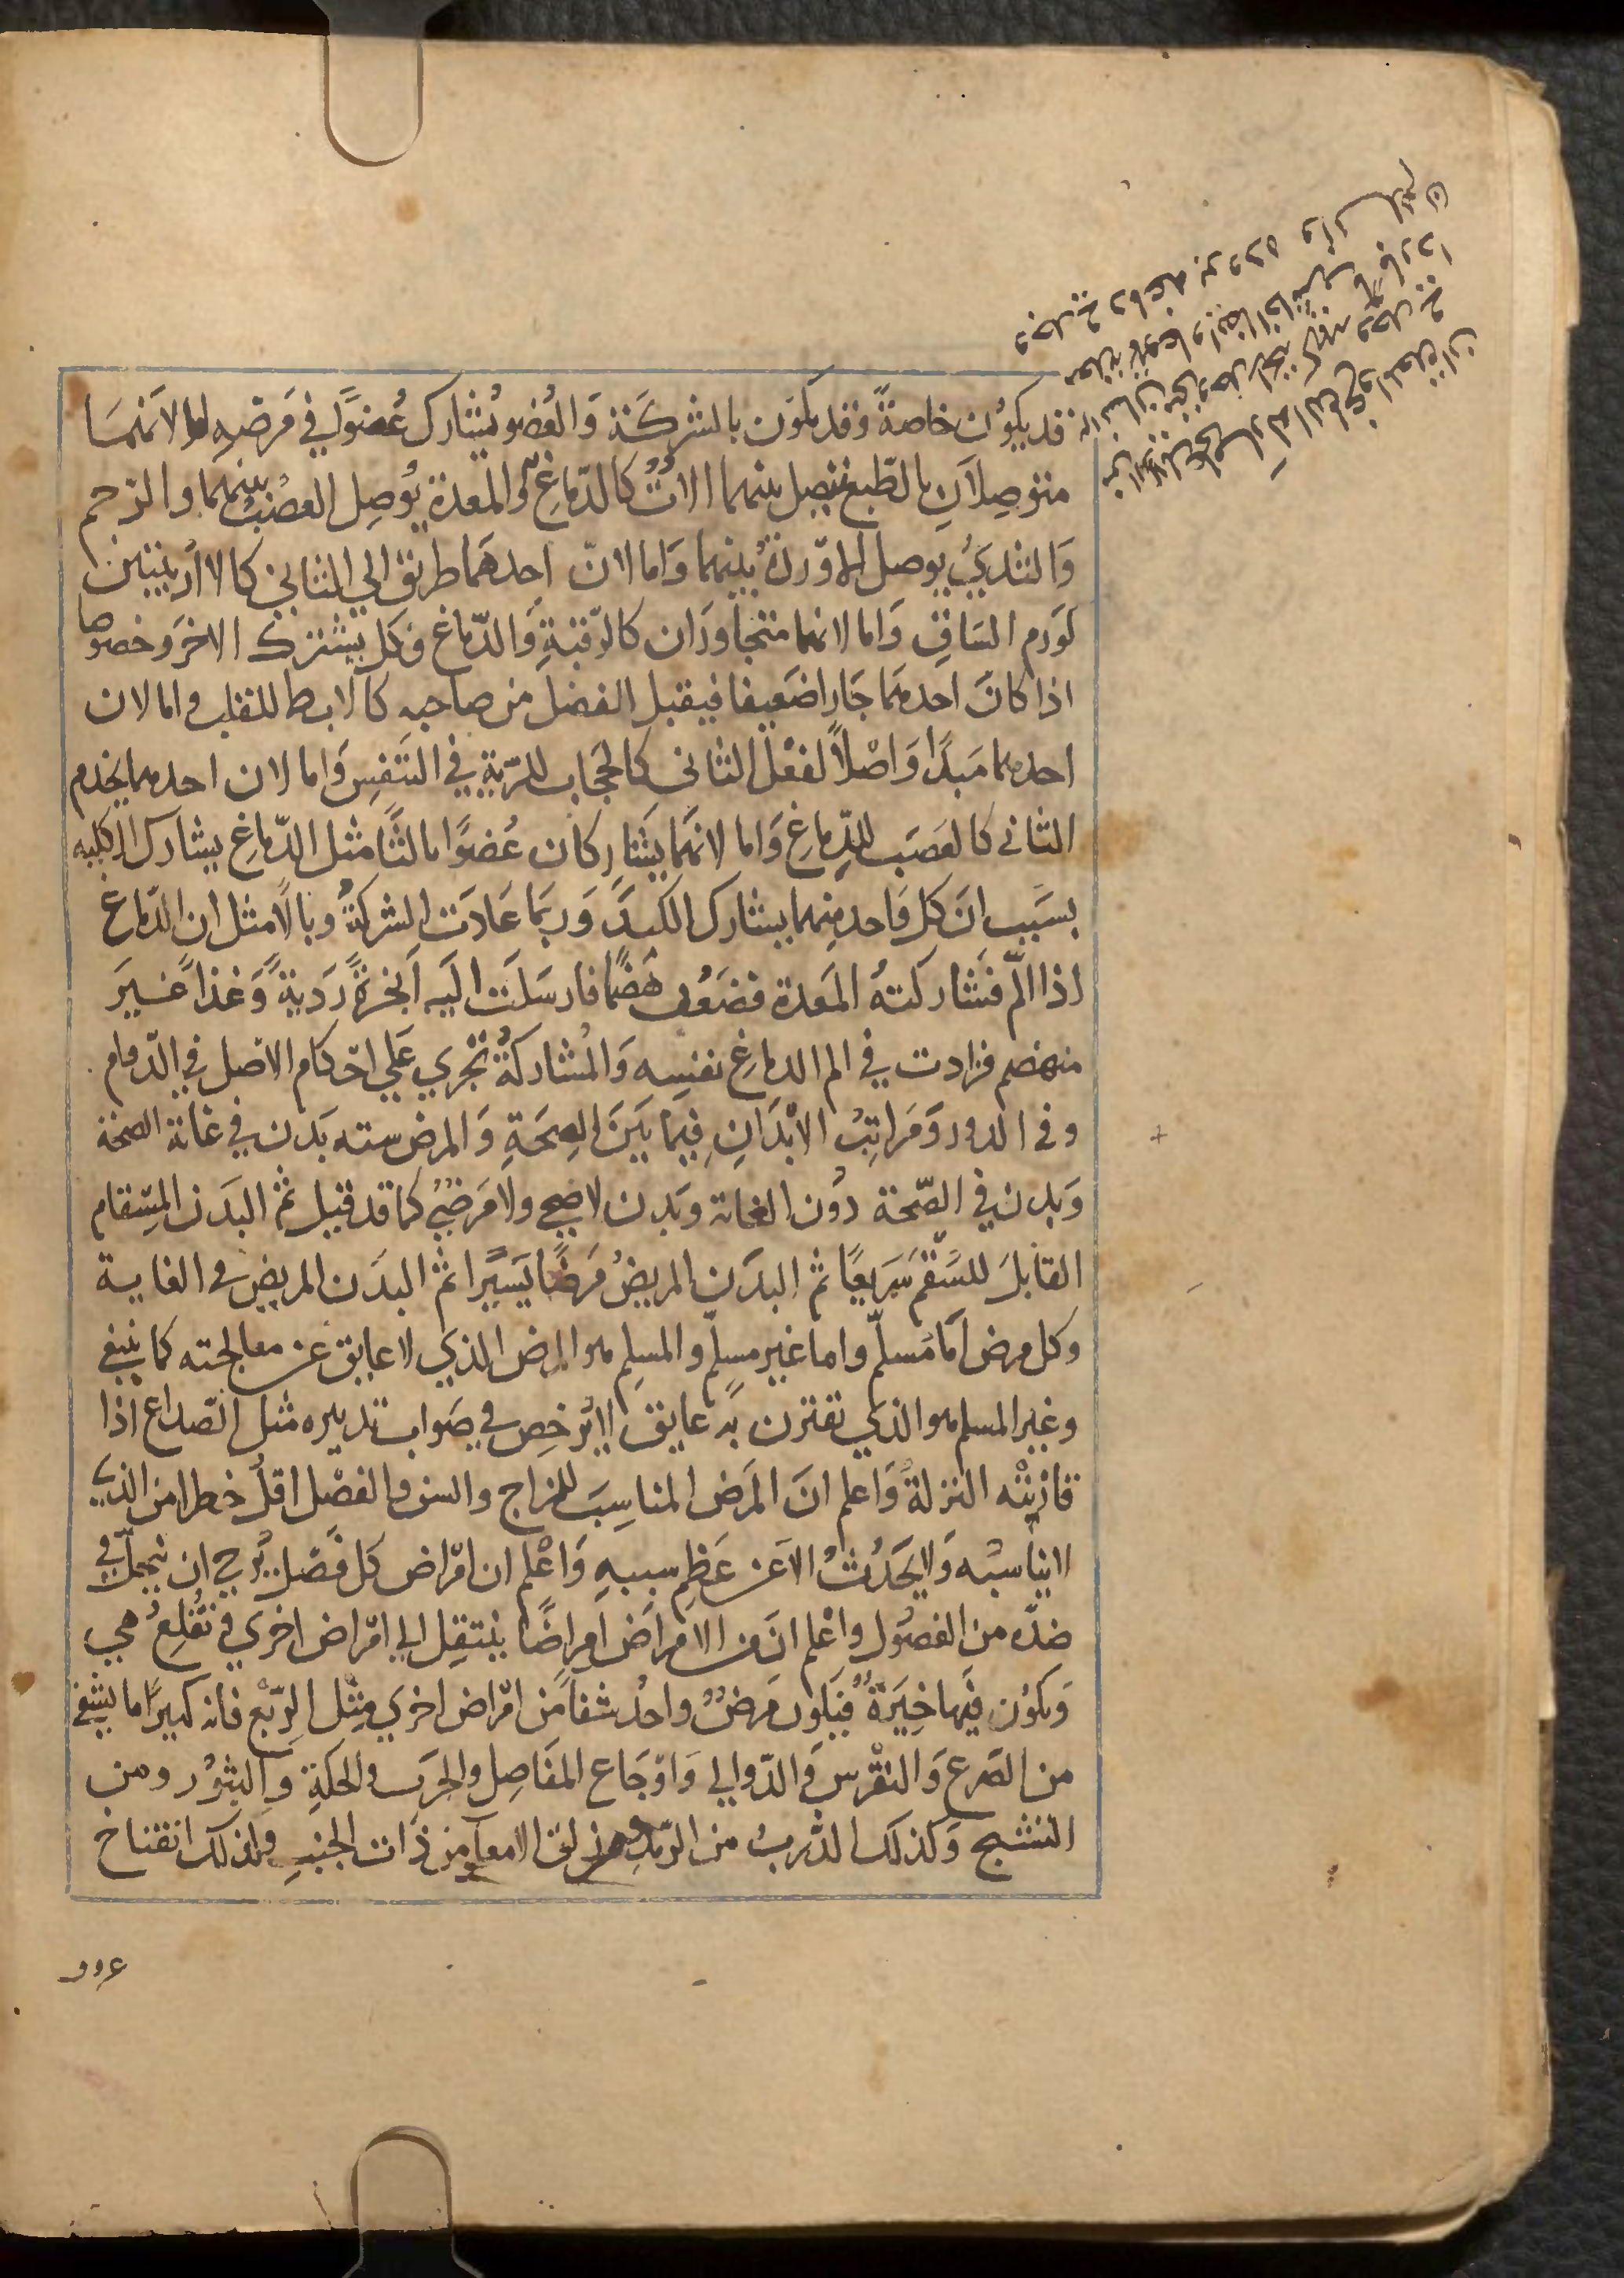 قد يكون خاصةً وقد يكون بالشركة والعضو يُشارك عُضوًا في مَرضِهِ اما لانهما
متوصلانِ بالطبع فتصل بينهما الاتٌ كالدماغِ والمعدة يُوصِل العصبُ بينهما والرحم
والثدي يوصل الاوردة بينهما واما لانّ احدهما طريق الي الثاني كالاربيتين
لورم الساقِ واما لانهما متجاوران كالرقبةِ والدّماغ وكل يشترك الاخرَ وخصوصا
اذا كان احدهما جارا ضعيفا فيقبل الفضل من صاحبهِ كالابط للقلب واما لان
احدهما مبدًا واصْلاً لفعْل الثاني كالحجاب للريّةِ في التنفس واما لان احدهما يخدم
الثاني كالعَصَب للدِّماغِ واما لانهما يشاركان عُضوًا ثالثًا مثل الدّماغ يشارك الكليه
بسَبب انّ كل واحد منهما يشارك الكبدَ وربما عادَت الشركةُ وبالًا مثل ان الدّماغ
اذا الَم فشاركتهُ المعدة فضعُف هضمًا فارسلَت اليَه ابخرةً رَديةً وغذاً غيرَ
منهضم فزادت في الم الدماغِ نفسِهِ والمُشاركةُ تجْري علي احكام الاصل في الدّوام
وفى الدور ومَراتِبُ الابْدَانِ فيما بَينَ الصحَةِ والمرض سته بَدن في غاية الصحة
وَبدن في الصّحة دُون الغاية وبدن لا صحي ولا مَرضيٌ كما قد قيل ثمّ البَدن المسقام
القابلَ للسَّقم سَريعًا ثمّ البدَن المريضُ مَرضًا يَسيرًا ثمّ البدَن المريض في الغاية
وكل مرض اما مُسلّم واما غير مسلم والمسلِم هو المرض الذي لا عايق عن معالجته كما ينبغي
وغير المسلم هو الذي تقترن به عايق لا يُرخِص في صَواب تدبيره مثل الصّداع اذا
قارنتْه النزلةُ وَاعلم انَ المرَض المناسِبَ للمزاج والسن والفصْل اقلُ خطرا من الذي
لا يناسبُه ولا يَحدُثُ الا عَن عَظِم سببهِ وَاعْلم ان امْراض كل فصْل يُرجى ان تنحل في
ضدّه من الفصُول واعْلم انَ من الامراض امراضًا ينتقِل الي امْراض اخري وتُقلِعُ هي
وَيكون فيها خِيَرَةٌ فيكون مَرضٌ واحدُ شفاً من امْراض اخري مثْل الرّبْع فانه كبيرًا ما يشفى
من الصَرع والنقْرس والدّوالي واوْجَاع المفَاصِل والجرَب والحكةِ والبثوْر ومن
التشنج وكذلك الذَرب من الرّمَد وزلق الامعاء من ذات الجنبِ وكذلك انفتاح